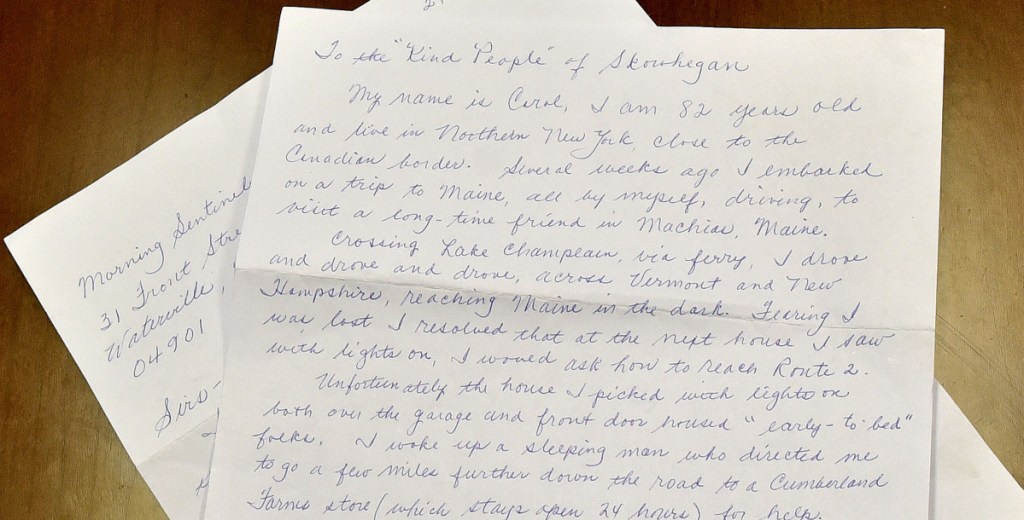 To the "Kind People" of Skowhegan
My name is Carol, I am 82 years old
and live in Northern New York, close to the
Canadian border. Several weeks ago I embarked
on a trip to Maine, all by myself, driving, to
visit a long-time friend in Machias, Maine.
Crossing Lake Champlain, via ferry, I drove
and drove and drove, across Vermont and New
Hampshire, reaching Maine in the dark. Fearing I
was lost I resolved that at the next house I saw
with lights on, I would ask how to reach Route 2.
Unfortunately the house I picked with lights on
both over the garage and front door housed "early-to-bed"
folks. I woke up a sleeping man who directed me
to go a few miles further down the road to a Cumberland
Farms store (which stays open 24 hours) for help.
Morning Sentinel
31 Front Stre
Waterville,
04901
Sirs-